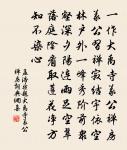 孟浩然題大禹寺義公
禪房詞典網
一作大禹寺義公禪房
義公習禪寂結宇依空
林戶外一峰秀階前衆
壑深夕陽連雨足空翠
落庭陰看取蓮花淨方
知不染心